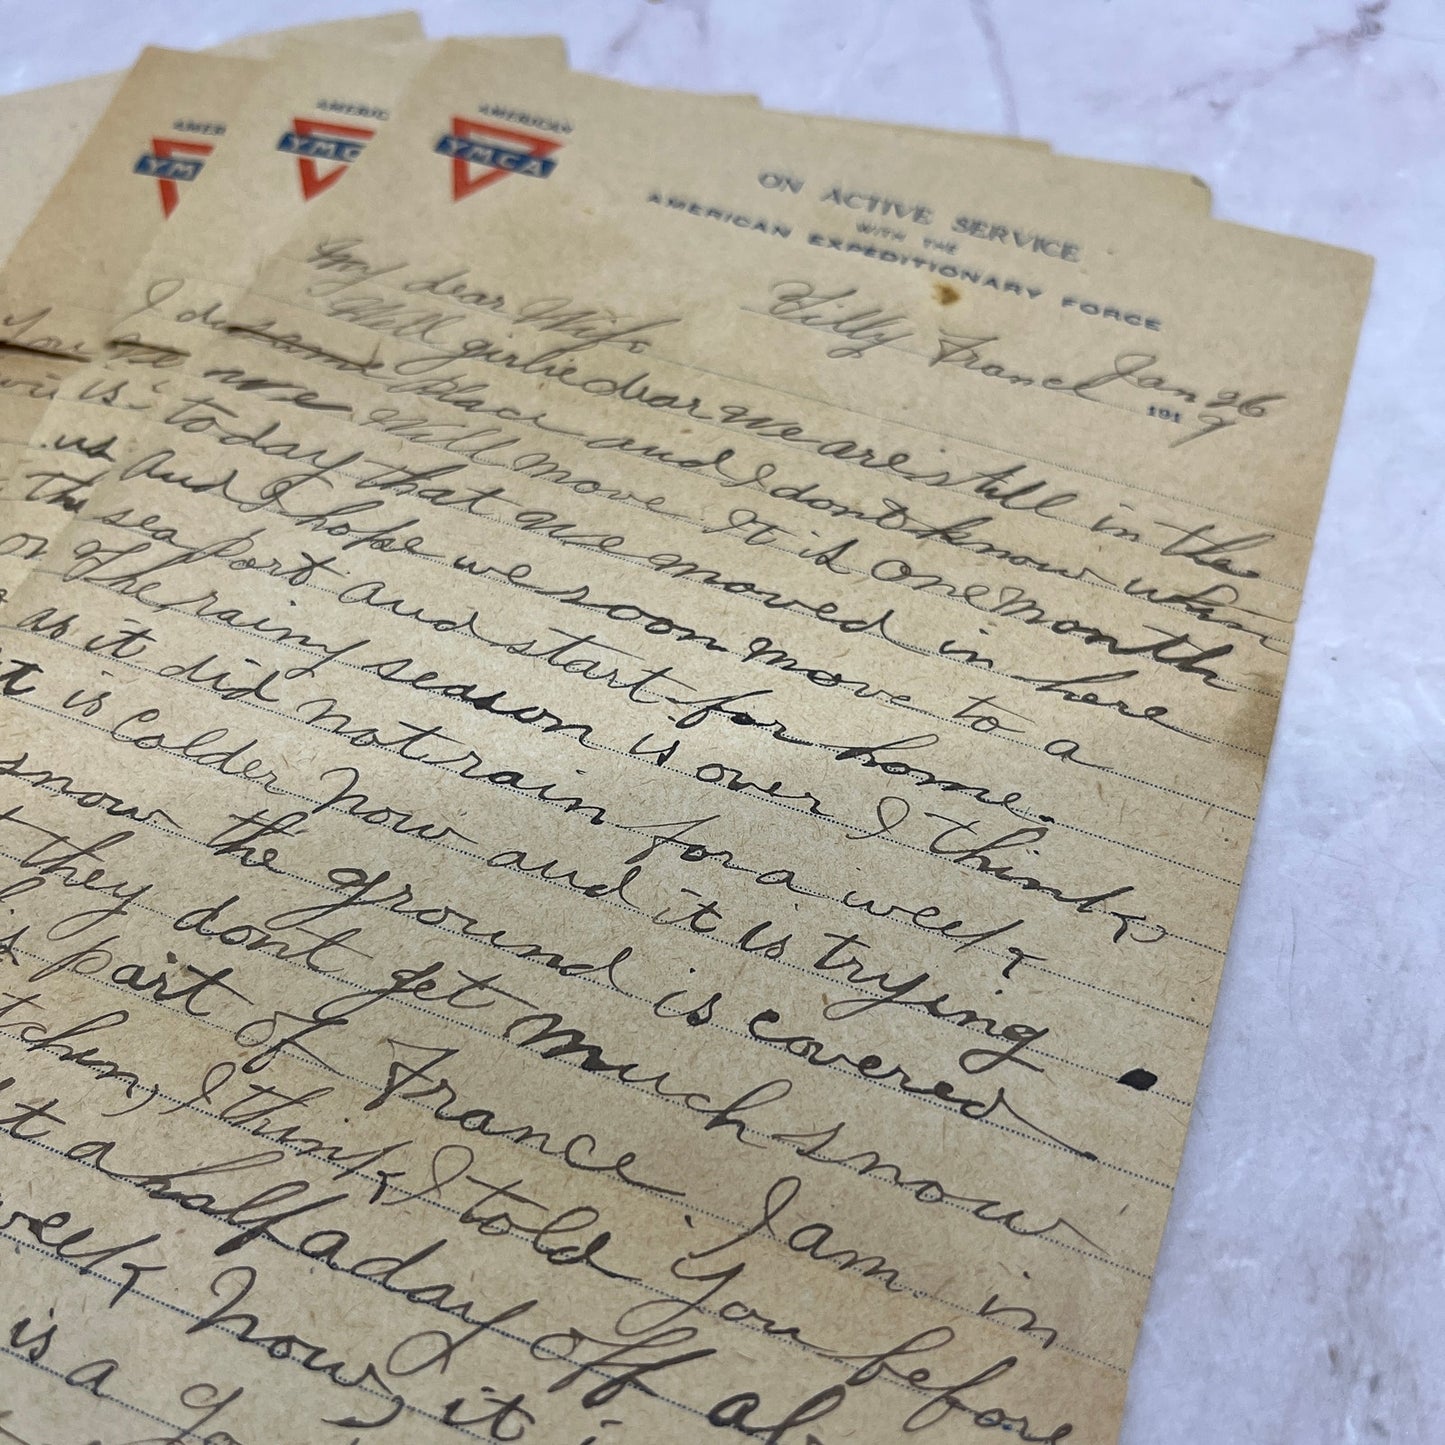 AMERICAN
YMCA
AMERIC
YMC
AMER
YM
ON ACTIVE SERVICE
WITH THE
AMERICAN EXPEDITIONARY FORCE
Tilly France Jan 26
191 9
My dear Wife
Well girlie dear we are still in the
same place and I dont know when
we Will move It is one month
today that we moved in here
and I hope we soon move to a
sea port and start for home.
The rainy season is over I think
as it did not rain for a week
it is Colder now and it is trying
snow the ground is covered
they dont get much snow
part of France I am in
I think I told you before
a half a day off
week Now, it
is a